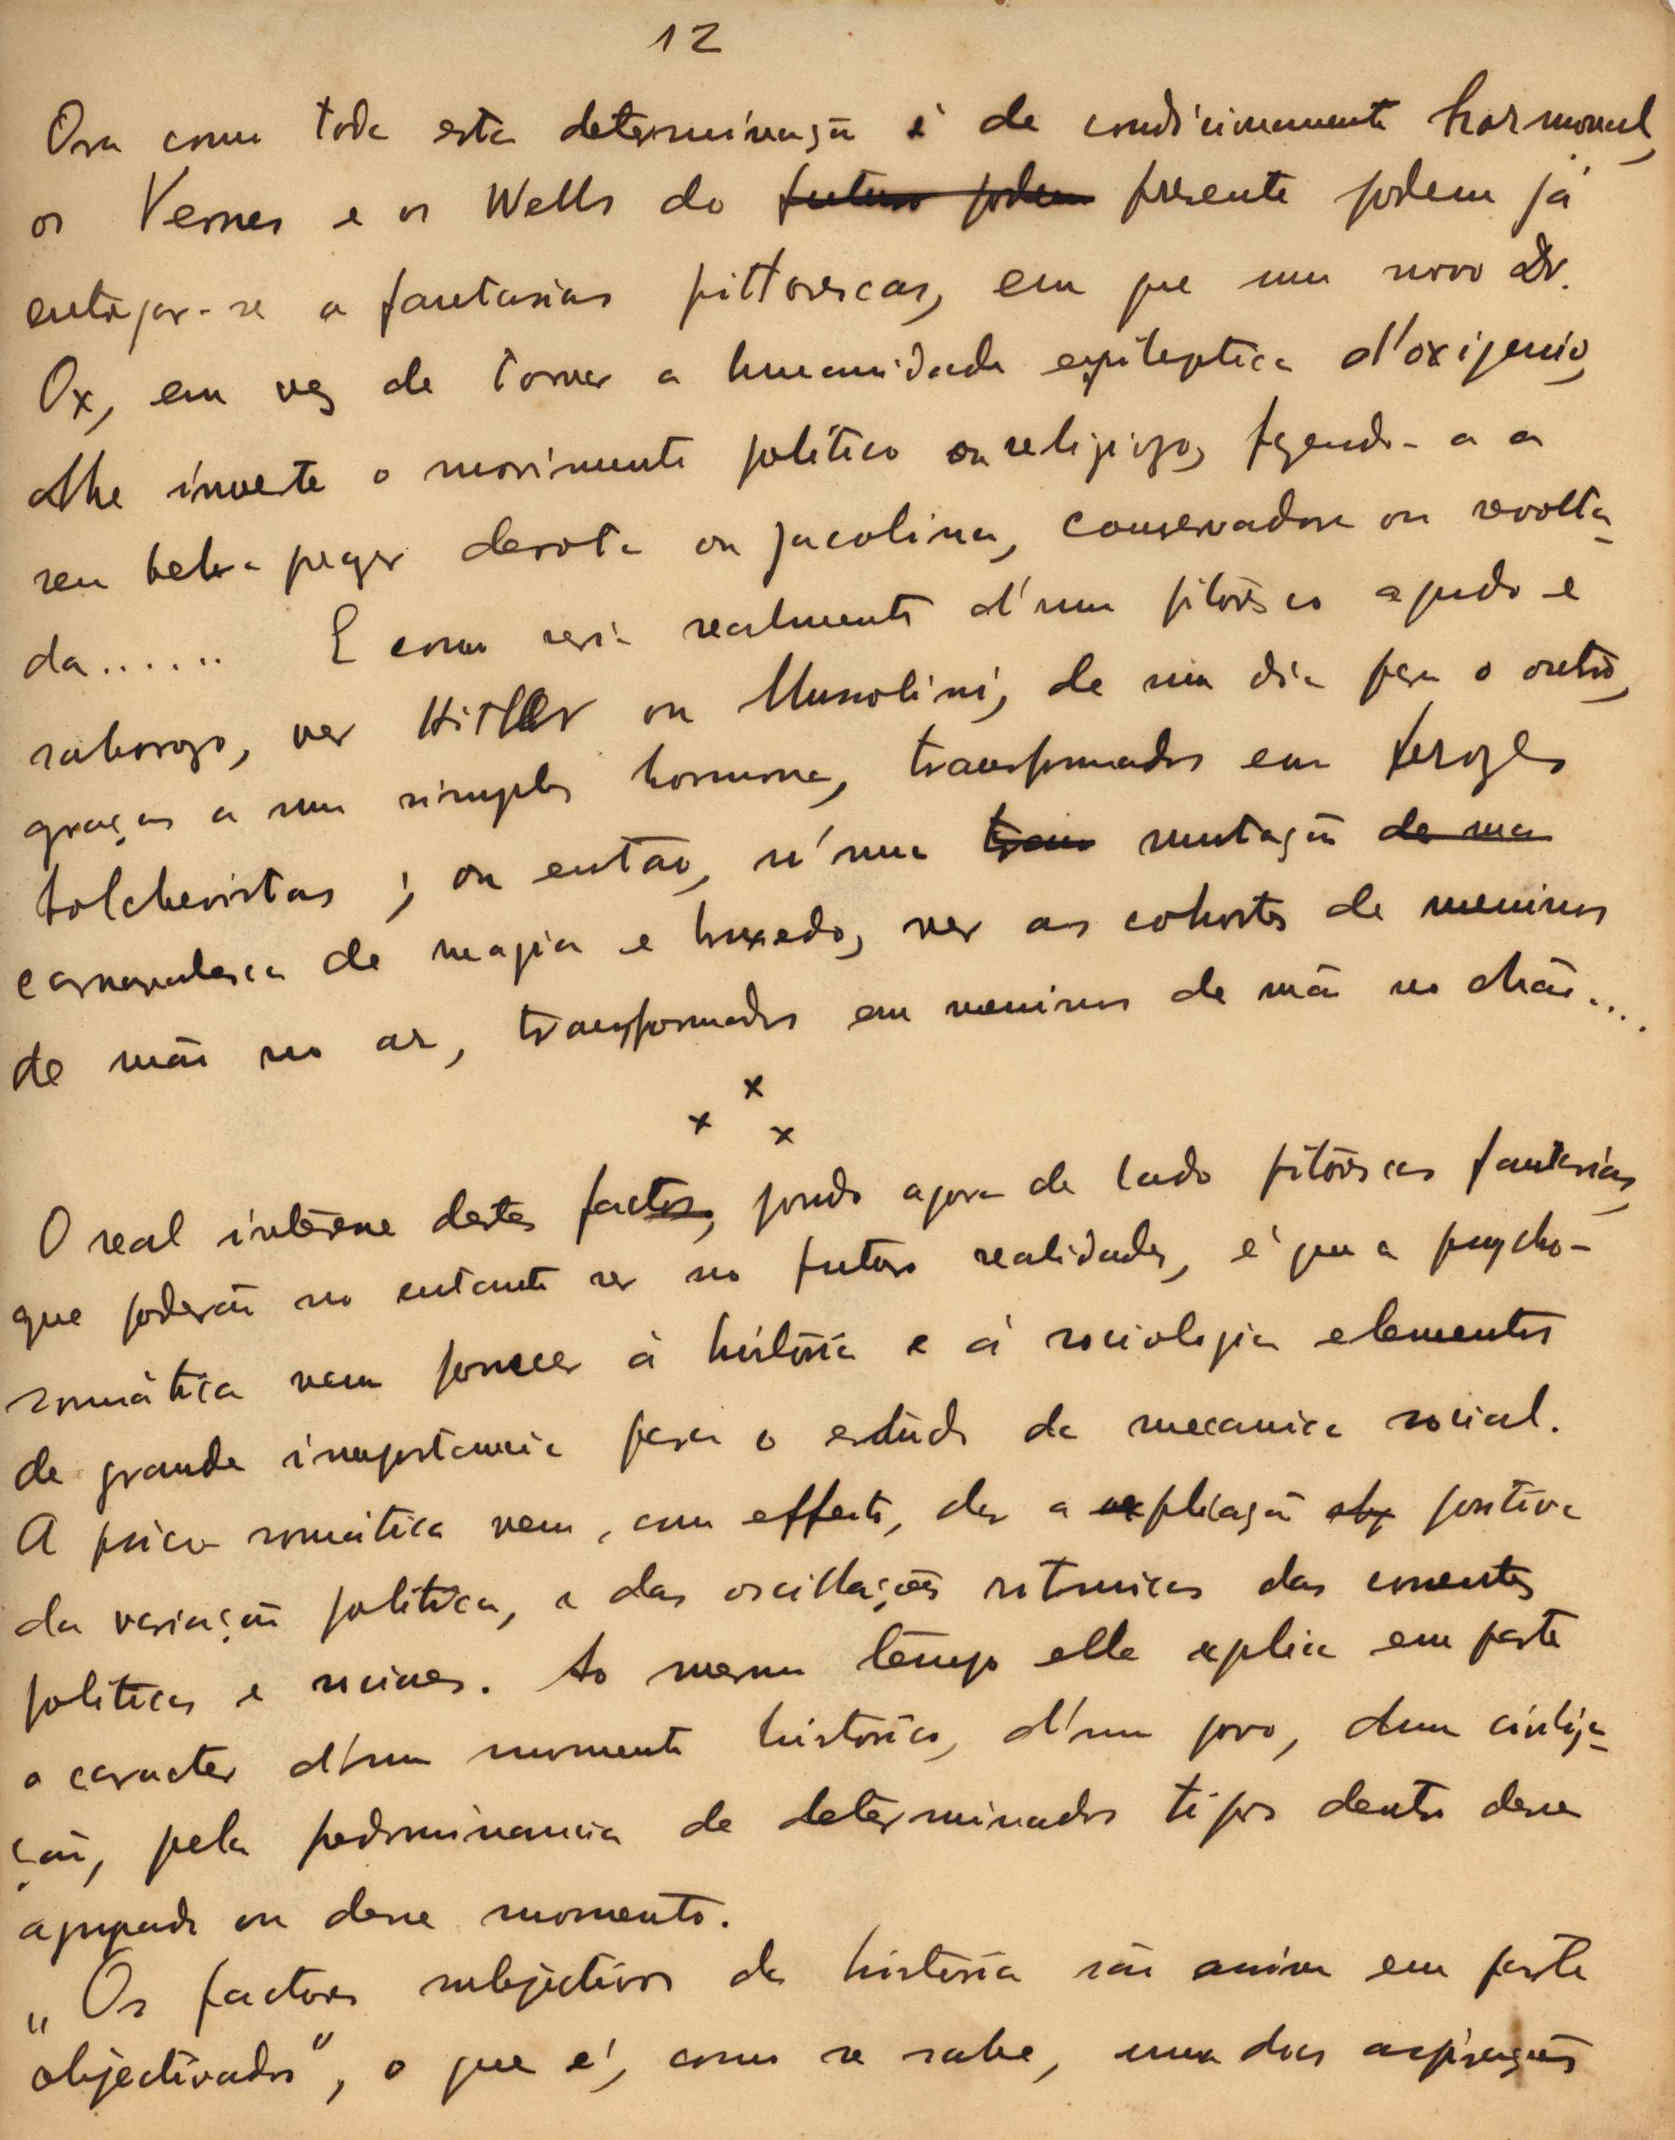 12
Ora como toda esta determinação é de condicionamento hormonal,
os Vernes e os Wells do futuro podem presente podem já
entregar-se a fantasias pittorescas, em que um novo Dr.
Ox, em vez de tornar a humanidade epileptica d'oxigenio,
lhe inverte o movimento politico ou religiozo, fazendo-a a
seu bel-prazer devota ou jacobina, conservadora ou revolta-
da...... E como seria realmente d'um pitôresco agudo e
saborozo, ver Hitler ou Mussolini, de um dia para o outro,
graças a um simples hormona, transformados em ferozes
bolchevistas; ou então, n'uma trans mutação de ma
carnavalesca de magia e bruxedo, ver as cohortes de meninos
de mão no ar, transformados em meninos de mão no chão....
x x x
O real intêresse destes factos, pondo agora de lado pitôrescas fantasias,
que poderão no entanto ser no futuro realidades, é que a psycho-
somática vem fornecer á história e á sociologia elementos
de grande importancia para o estudo da mecanica social.
A psico somática vem, com effeito, dar a explicação obj positiva
da variação politica, e das oscillações ritmicas das correntes
politicas e sociaes. Ao mesmo tempo ella explica em parte
o caracter d'um momento historico, d'um povo, duma civiliza-
ção, pela predominancia de determinados tipos dentro desse
agrupado ou desse momento.
"Os factores subjectivos da história são assim em parte
objectivados", o que é, como se sabe, uma das aspirações